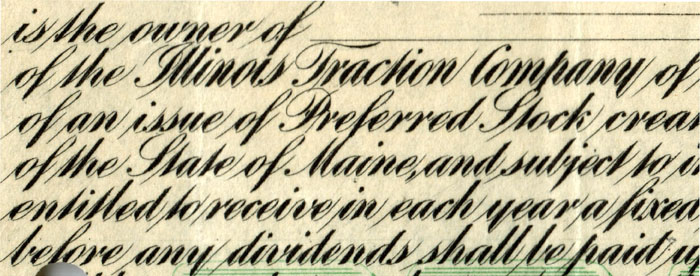 is the owner of
of the Illinois Traction Company of
of an issue of Preferred Stock crea
of the State of Maine, and subject to i
entitled to receive in each year a fixed
before any dividends shall be paid u